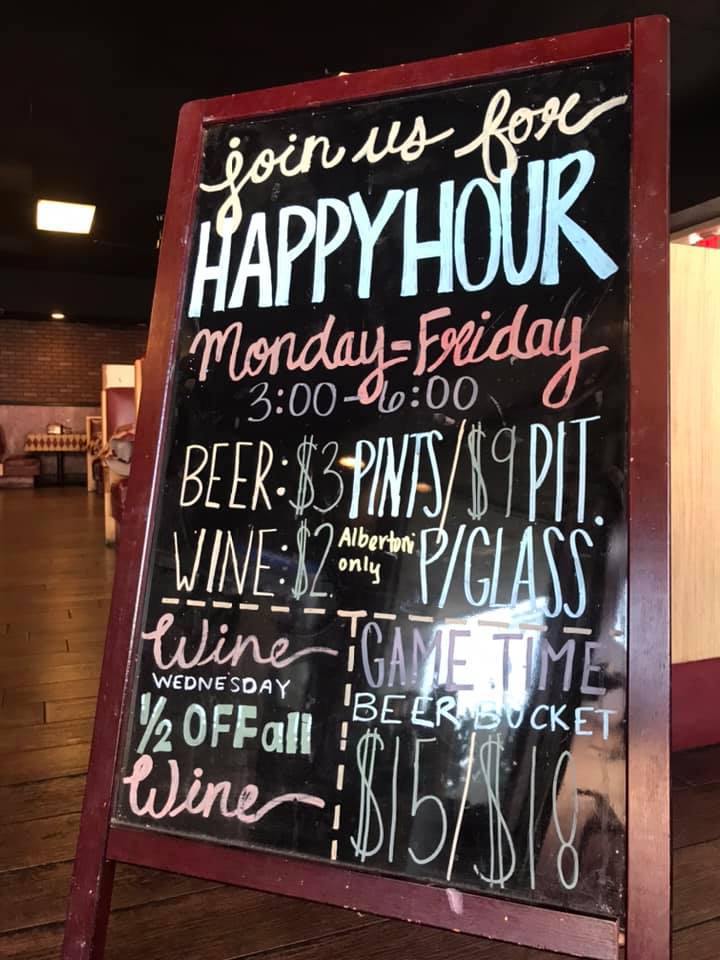 join us for
HAPPY HOUR
Monday-Friday
3:00-6:00
BEER: $3 PINTS/$9 PIT.
WINE: $2 Albertoni only P/GLASS
Wine
WEDNESDAY
1/2 OFF all
Wine
GAME TIME
BEER BUCKET
$15/$18